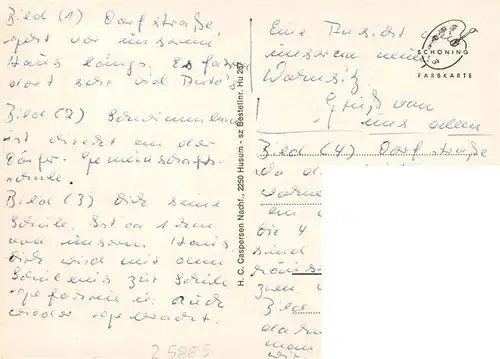 Bild (1) Dorfstraße,
geht vor unserem
Haus längs. Es fahren
dort sehr viel Auto's
Bild (2) Schwimmbad
ist direkt an der
Dörfer-Gemeinschafts-
schule.
Bild (3) Dirk seine
Schule. Ist ca 1 km
von unserem Haus.
Dirk wird mit dem
Schulbus zur Schule
gefahren u. auch
wieder gebracht.
25885
H. C. Caspersen Nachf., 2250 Husum - sz Bestellnr. Hu 257
Eine Ansicht
unserem neuen
Wohnsitz
Gruß von
uns allen
SCHÖNING
FARBKARTE
Bild (4) Dorfstraße
die 4
sind
Bild
man
wir